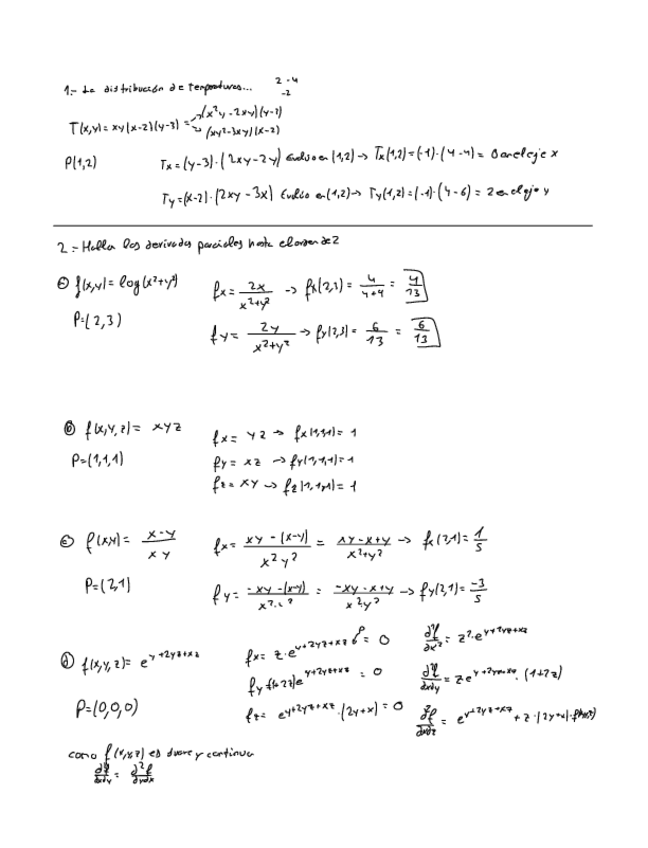 1.- La distribución de temperaturas... 2 - 4
-2
T(x,y) = xy(x-2)(y-3) = (x²y - 2xy)(y-3)
(xy²-3xy)(x-2)
P(1,2) Tx = (y-3)·(2xy-2y) Evalúo en (1,2) → Tx(1,2) = (-1)·(4-4) = 0 en el eje x
Ty = (x-2)·(2xy-3x) Evalúo en (1,2) → Ty(1,2) = (-1)·(4-6) = 2 en el eje y
2.- Halla las derivadas parciales hasta el orden 2
f(x,y) = log(x²+y²) fx = 2x / x²+y² → fx(2,3) = 4 / 4+4 = 4/13
P=(2,3) fy = 2y / x²+y² → fy(2,3) = 6/13 = 6/13
b) f(x,y,z) = xyz fx = yz → fx(1,1,1) = 1
P=(1,1,1) fy = xz → fy(1,1,1) = 1
fz = xy → fz(1,1,1) = 1
c) f(x,y) = x-y / xy fx = xy - (x-y) / x²y² = xy-x+y / x²+y² → fx(2,1) = 1/5
P=(2,1) fy = -xy-(x-y) = -xy-x+y / x²y² → fy(2,1) = -3/5
d) f(x,y,z) = e^y+2yz+xz fx = z·e^y+2yz+xz = 0 ∂²f/∂x² = z²·e^y+2yz+xz
fy = (1+2z)e^y+2yz+xz = 0 ∂²f/∂x∂y = ze^y+2yz+xz·(1+2z)
P=(0,0,0) fz = e^y+2yz+xz·(2y+x) = 0 ∂²f/∂x∂z = e^y+2yz+xz + z·(2y+x)·
como f(x,y,z) es y continua
∂²f/∂x∂y = ∂²f/∂y∂x